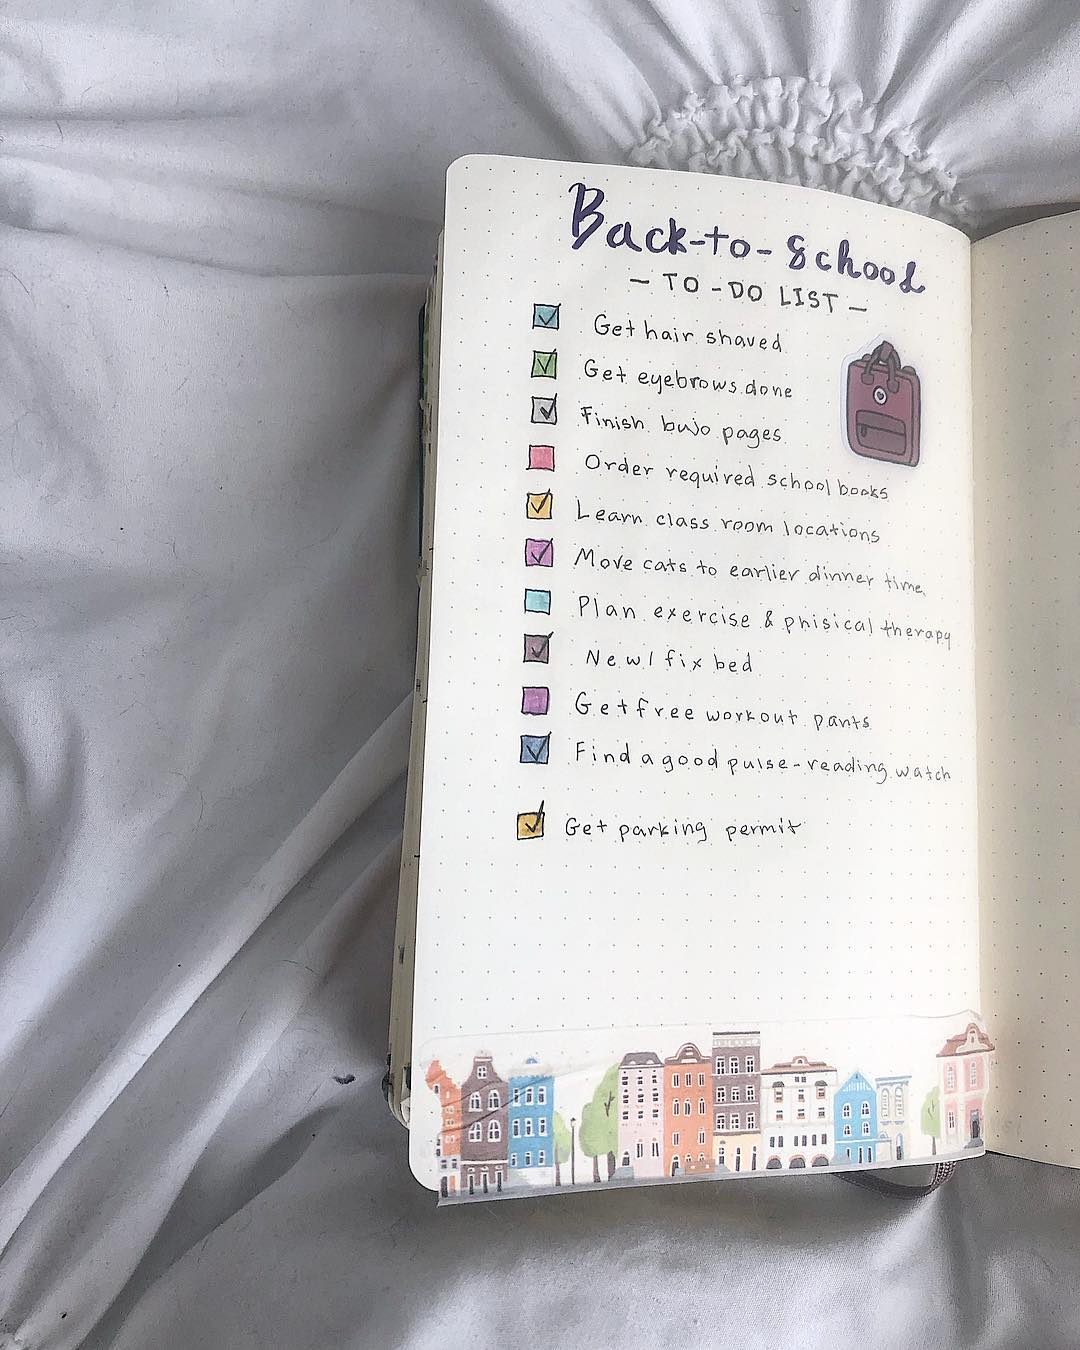 Back-to-School
- TO-DO LIST -
Get hair shaved
Get eyebrows done
Finish bujo pages
Order required school books
Learn class room locations
Move cats to earlier dinner time
Plan exercise & phisical therapy
New/fix bed
Get free workout pants
Find a good pulse-reading watch
Get parking permit